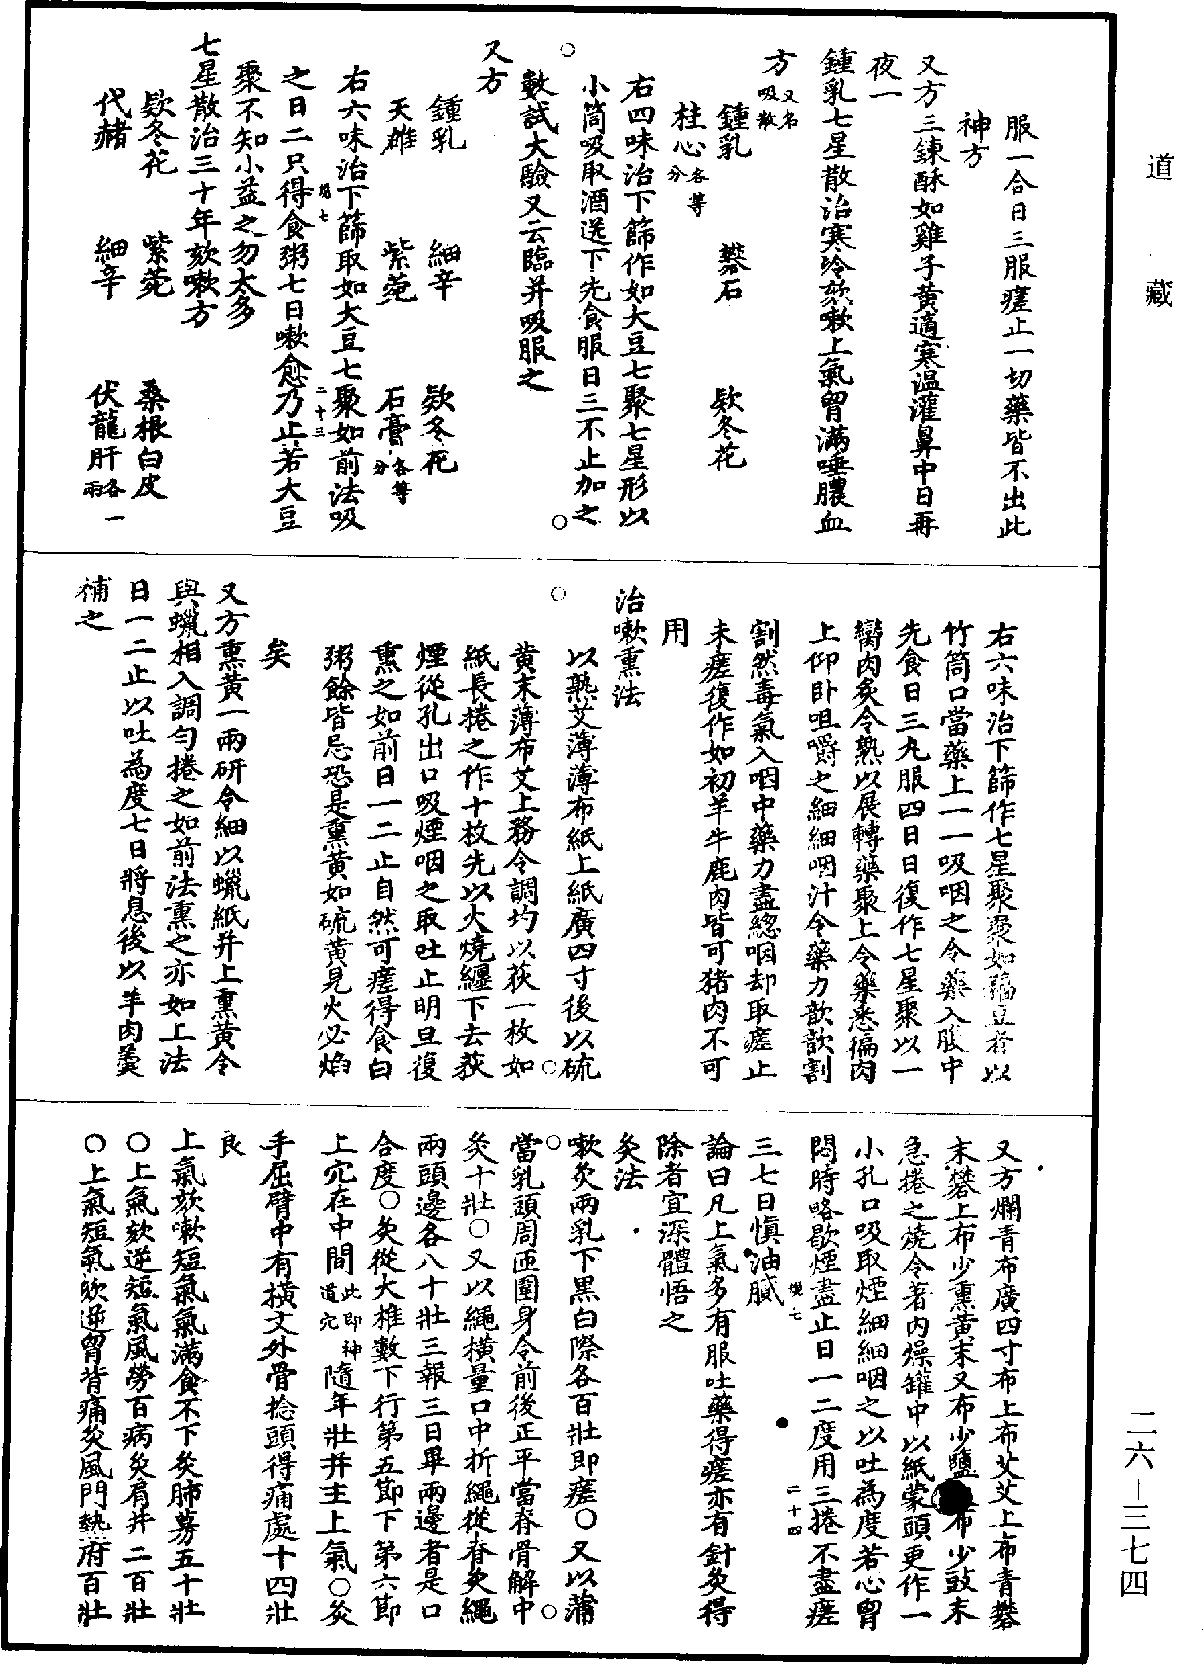 道藏
服一合日三服瘥止一切藥皆不出此
神方
又方三鍊酥如雞子黃適寒溫灌鼻中日再
夜一
鍾乳七星散治寒冷欬嗽上氣胷滿唾膿血
方又名吸散
鍾乳 礬石 欵冬花
桂心各等分
右四味治下篩作如大豆七聚七星形以
小筒吸取酒送下先食服日三不止加之
數試大驗又云臨井吸服之
又方
鍾乳 細辛 欵冬花
天雄 紫菀 石膏各等分
右六味治下篩取如大豆七聚如前法吸
之日二只得食粥七日嗽愈乃止若大豆
聚不知小益之勿太多
七星散治三十年欬嗽方
欵冬花 紫菀 桑根白皮
代赭 細辛 伏龍肝各一兩
右六味治下篩作七星聚聚如豆者以
竹筒口當藥上一一吸咽之令藥入腹中
先食日三丸服四日日復作七星聚以一
臠肉炙令熟以展轉藥聚上令藥悉徧肉
上仰卧咀嚼之細細咽汁令藥力歆歆割
割然毒氣入咽中藥力盡總咽却取瘥止
未瘥復作如初羊牛鹿肉皆可猪肉不可
用
治嗽熏法
以熟艾薄薄布紙上紙廣四寸後以硫
黃末薄布艾上務令調均以荻一枚如
紙長捲之作十枚先以火燒纏下去荻
煙從孔出口吸煙咽之取吐止明旦復
熏之如前日一二止自然可瘥得食白
粥餘皆忌恐是熏黃如硫黃見火必焰
矣
又方熏黃一兩研令細以蠟紙并上熏黃令
與蠟相入調勻捲之如前法熏之亦如上法
日一二止以吐為度七日將息後以羊肉羹
補之
又方爛青布廣四寸布上布艾艾上布青礬
末礬上布少熏黃末又布少鹽布少豉末
急捲之燒令著內燥罐中以紙蒙頭更作一
小孔口吸取煙細細咽之以吐為度若心胷
悶時略歇煙盡止日一二度用三捲不盡瘥
三七日慎油膩
論曰凡上氣多有服吐藥得瘥亦有針灸得
除者宜深體悟之
灸法
嗽灸兩乳下黑白際各百壯即瘥○又以蒲
當乳頭周匝圍身令前後正平當脊骨解中
灸十壯○又以繩橫量口中折繩從脊灸繩
兩頭邊各八十壯三報三日畢兩邊者是口
合度○灸從大椎數下行第五節下第六節
上穴在中間此即神道穴隨年壯并主上氣○灸
手屈臂中有橫文外骨捻頭得痛處十四壯
良
上氣欬嗽短氣氣滿食不下灸肺募五十壯
○上氣欬逆短氣風勞百病灸肩井二百壯
○上氣短氣欬逆胷背痛灸風門熱府百壯
二六－三七四